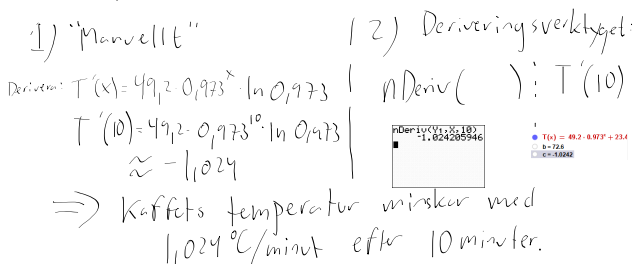 1) "Manuellt"
Derivera: T'(x) = 49,2 · 0,973^x · ln 0,973
T'(10) = 49,2 · 0,973^10 · ln 0,973
≈ -1,024
2) Deriveringsverktyget:
nDeriv( ) ⋮ T'(10)
nDeriv(Y1,X,10)
-1.024205946
T(x) = 49.2 · 0.973^x + 23.4
b = 72.6
c = -1.0242
⇒ Kaffets temperatur minskar med
1,024 °C/minut efter 10 minuter.